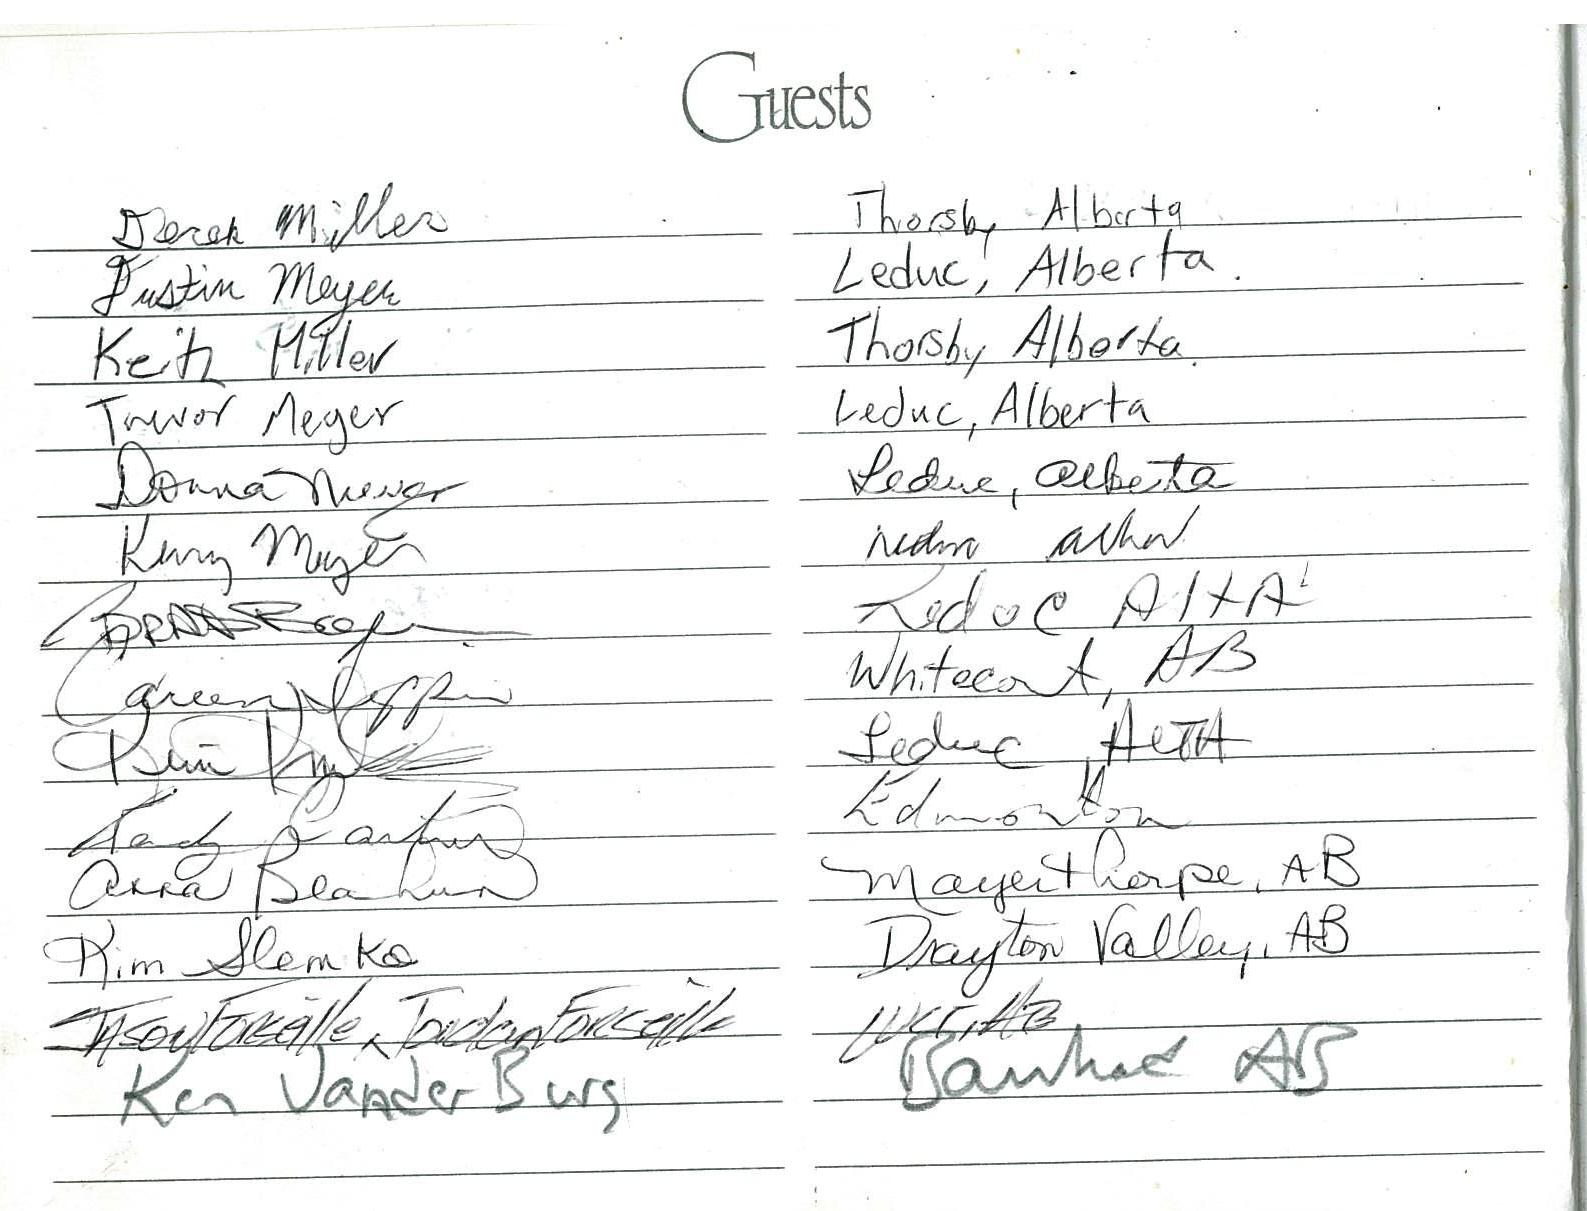 Guests
Derek Miller Thorsby Alberta
Justin Meyer Leduc, Alberta.
Keith Miller Thorsby Alberta.
Trevor Meyer Leduc, Alberta
Donna Meyer Leduc, Alberta
Kerry Meyer
Leduc AltA
Careen Whitecourt, AB
Leduc, ALTA
Edmonton
Anna Mayerthorpe, AB
Kim Slemko Drayton Valley, AB
Jason Forseille, Jordan Forseille AB
Ken VanderBurg Barrhead AB